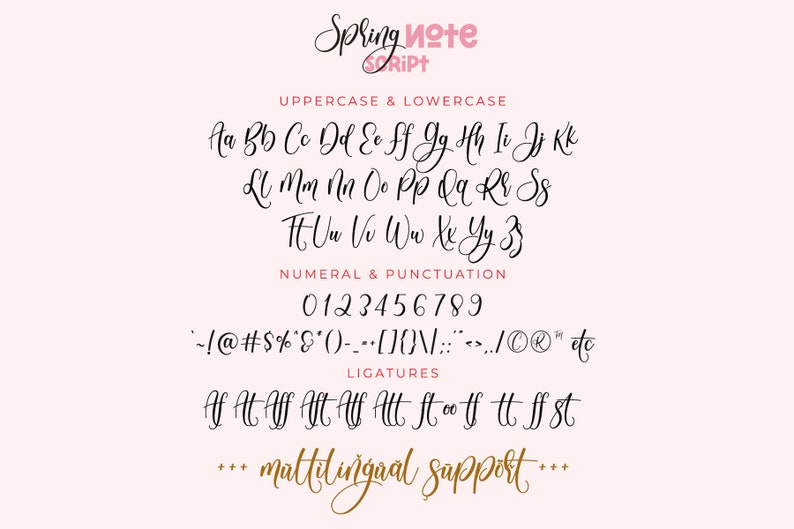 Spring Note
Script
UPPERCASE & LOWERCASE
Aa Bb Cc Dd Ee Ff Gg Hh Ii Jj Kk
Ll Mm Nn Oo Pp Qq Rr Ss
Tt Uu Vv Ww Xx Yy Zz
NUMERAL & PUNCTUATION
0 1 2 3 4 5 6 7 8 9
`~!@#$%^&*()-_=+[]{}\|;:'"<>,./©®™ etc
LIGATURES
Af At Aff Aft Atf Att ft oo tf tt ff st
+++ mūltĭlĭňğůăl şŭppőřt +++